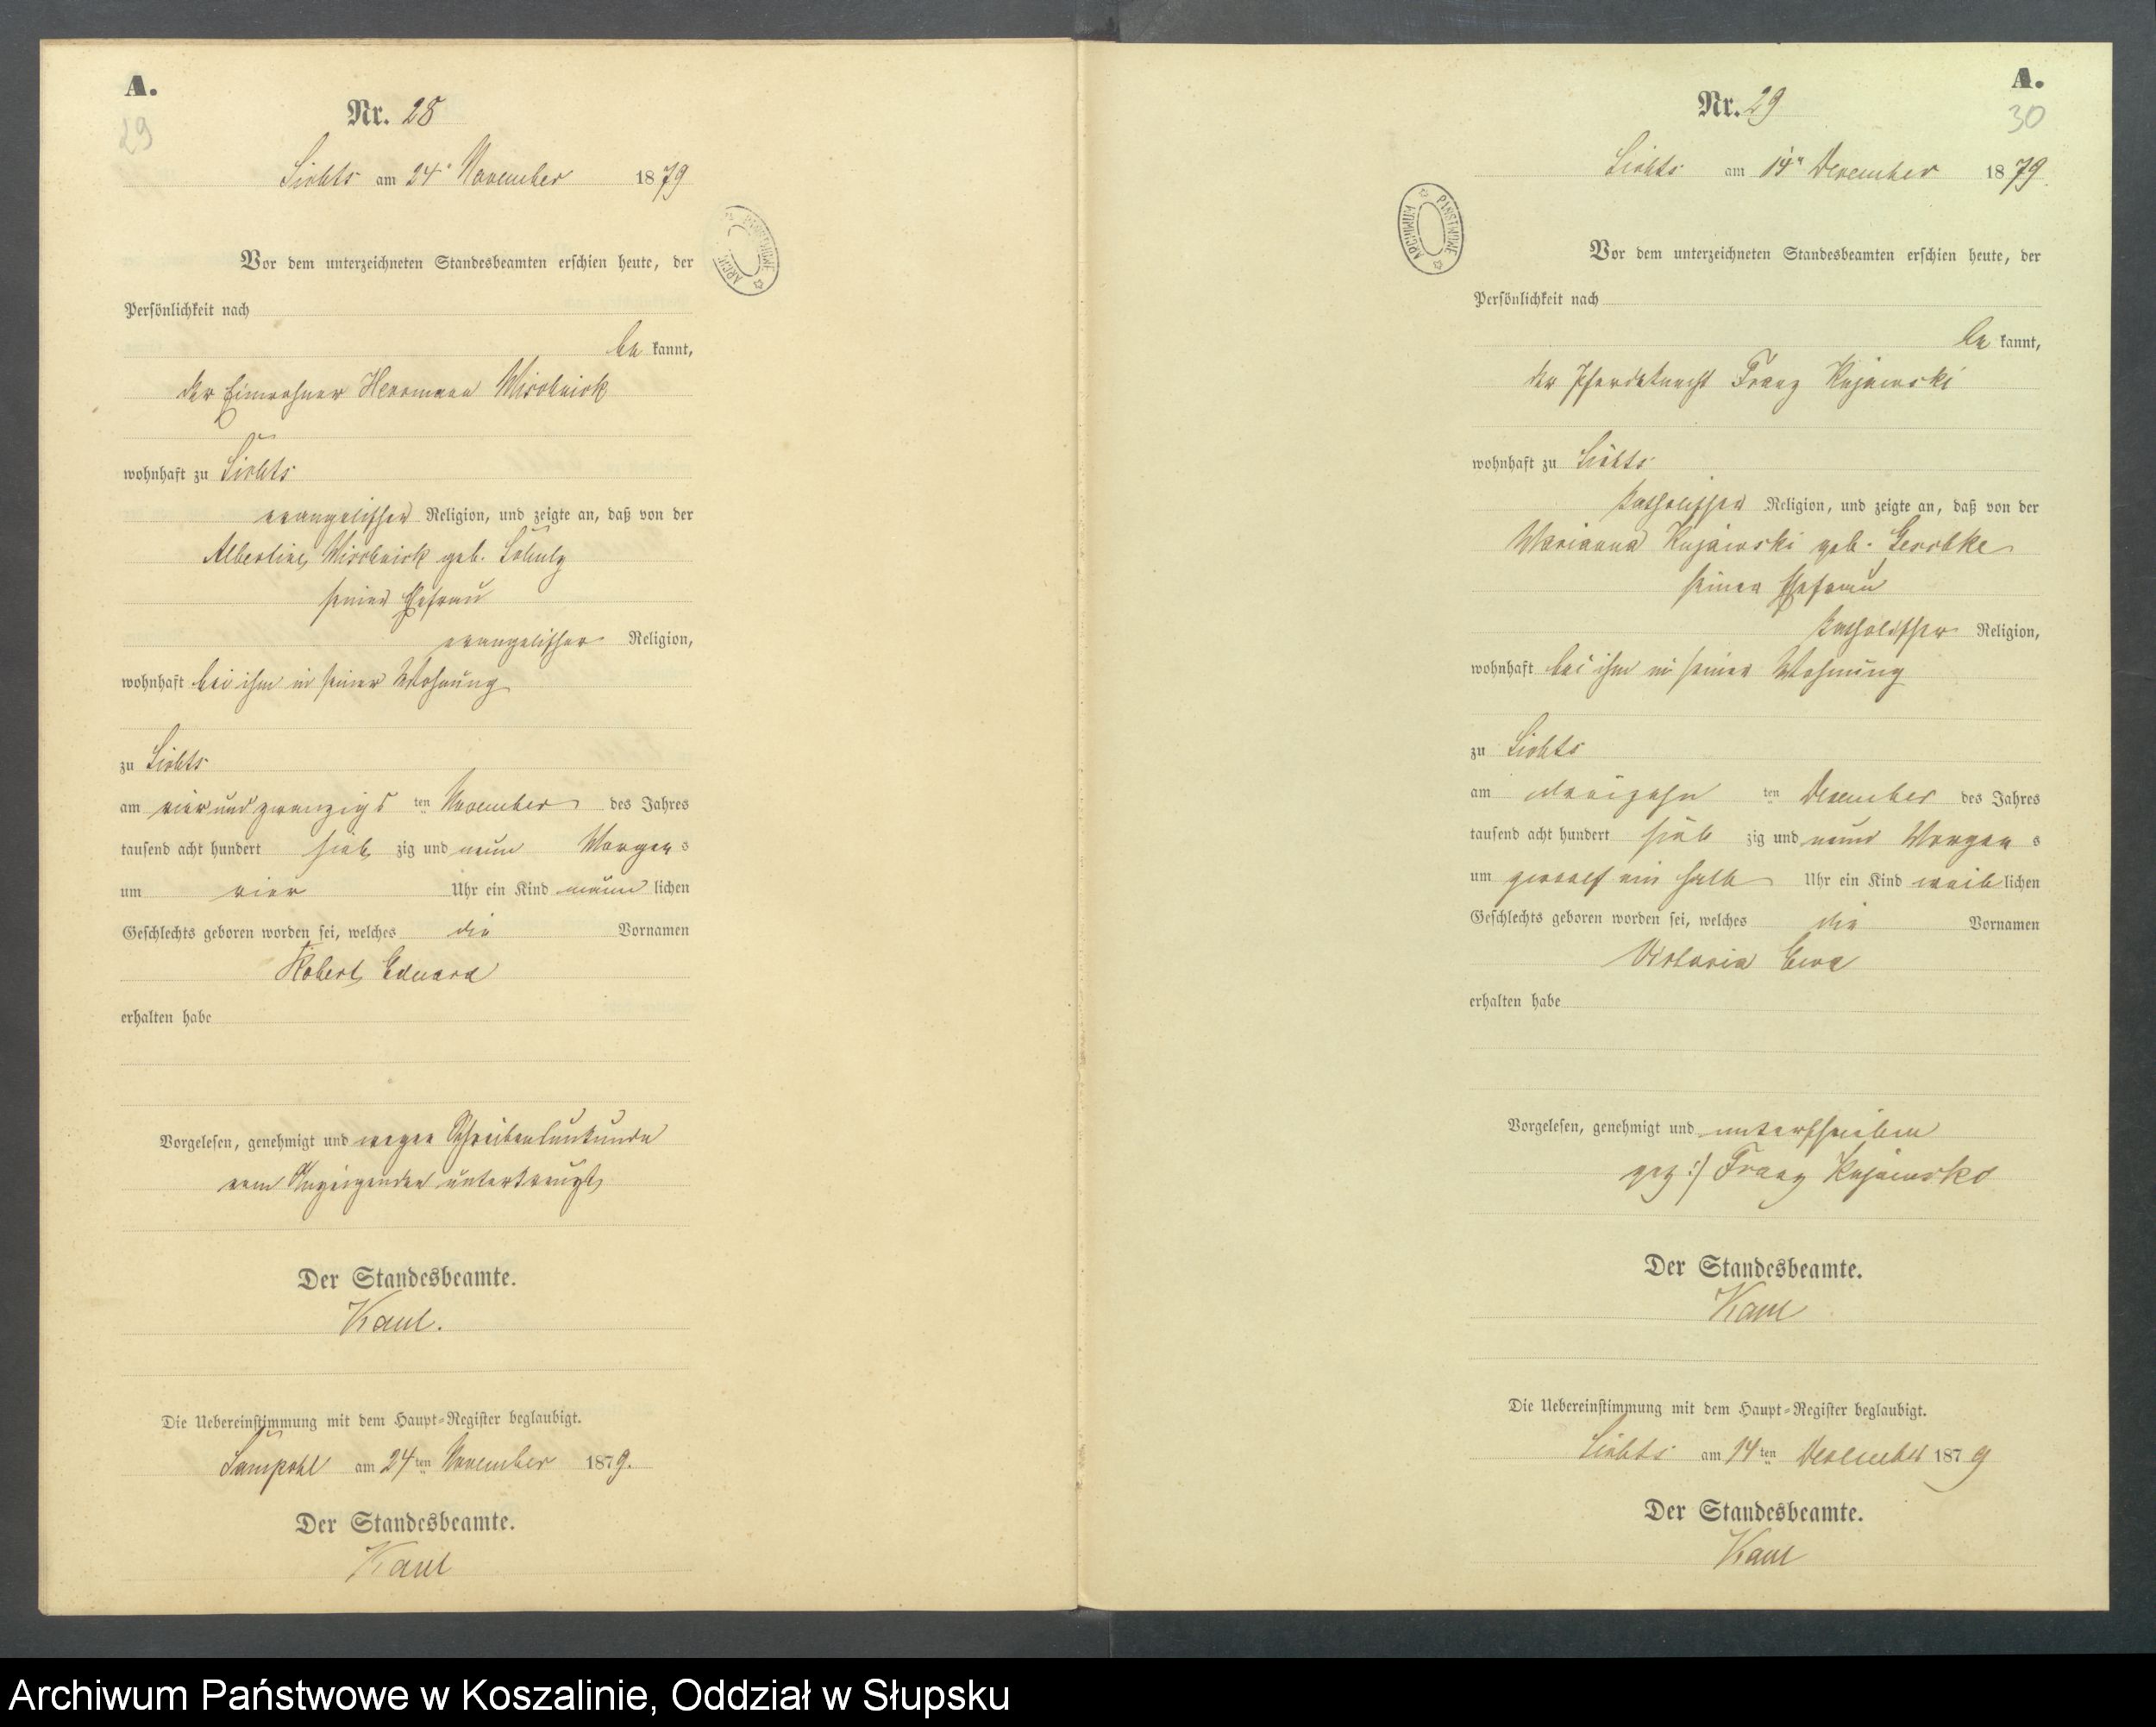 A.
29
Nr. 28
am 24ten November 1879
Vor dem unterzeichneten Standesbeamten erschien heute, der
Persönlichkeit nach
be kannt,
der Einwohner Herrmann
wohnhaft zu
evangelischer Religion, und zeigte an, daß von der
Albertine geb. Schulz
seiner Ehefrau
evangelischer Religion,
wohnhaft bei ihm in seiner Wohnung
zu
am vier und zwanzigs ten November des Jahres
tausend acht hundert sieb zig und neun Morgens
um vier Uhr ein Kind männ lichen
Geschlechts geboren worden sei, welches die Vornamen
Robert Eduard
erhalten habe
Vorgelesen, genehmigt und wegen Schreibensunkunde
vom Anzeigenden unterkreuzt
Der Standesbeamte.
Kaul.
Die Uebereinstimmung mit dem Haupt-Register beglaubigt.
Sampohl am 24ten November 1879.
Der Standesbeamte.
Kaul
ARCHIWUM PAŃSTWOWE
A.
30
Nr. 29
am 14ten December 1879
ARCHIWUM PAŃSTWOWE
Vor dem unterzeichneten Standesbeamten erschien heute, der
Persönlichkeit nach
be kannt,
der Pferdeknecht Franz Kujawski
wohnhaft zu
katholischer Religion, und zeigte an, daß von der
Marianna Kujawski geb.
seiner Ehefrau
katholischer Religion,
wohnhaft bei ihm in seiner Wohnung
zu
am dreizehn ten December des Jahres
tausend acht hundert sieb zig und neun Morgens
um zwoelf ein halb Uhr ein Kind weib lichen
Geschlechts geboren worden sei, welches die Vornamen
Victoria Ewa
erhalten habe
Vorgelesen, genehmigt und unterschrieben
gez:/ Franz Kujawski
Der Standesbeamte.
Kaul
Die Uebereinstimmung mit dem Haupt-Register beglaubigt.
am 14ten December 1879
Der Standesbeamte.
Kaul
Archiwum Państwowe w Koszalinie, Oddział w Słupsku